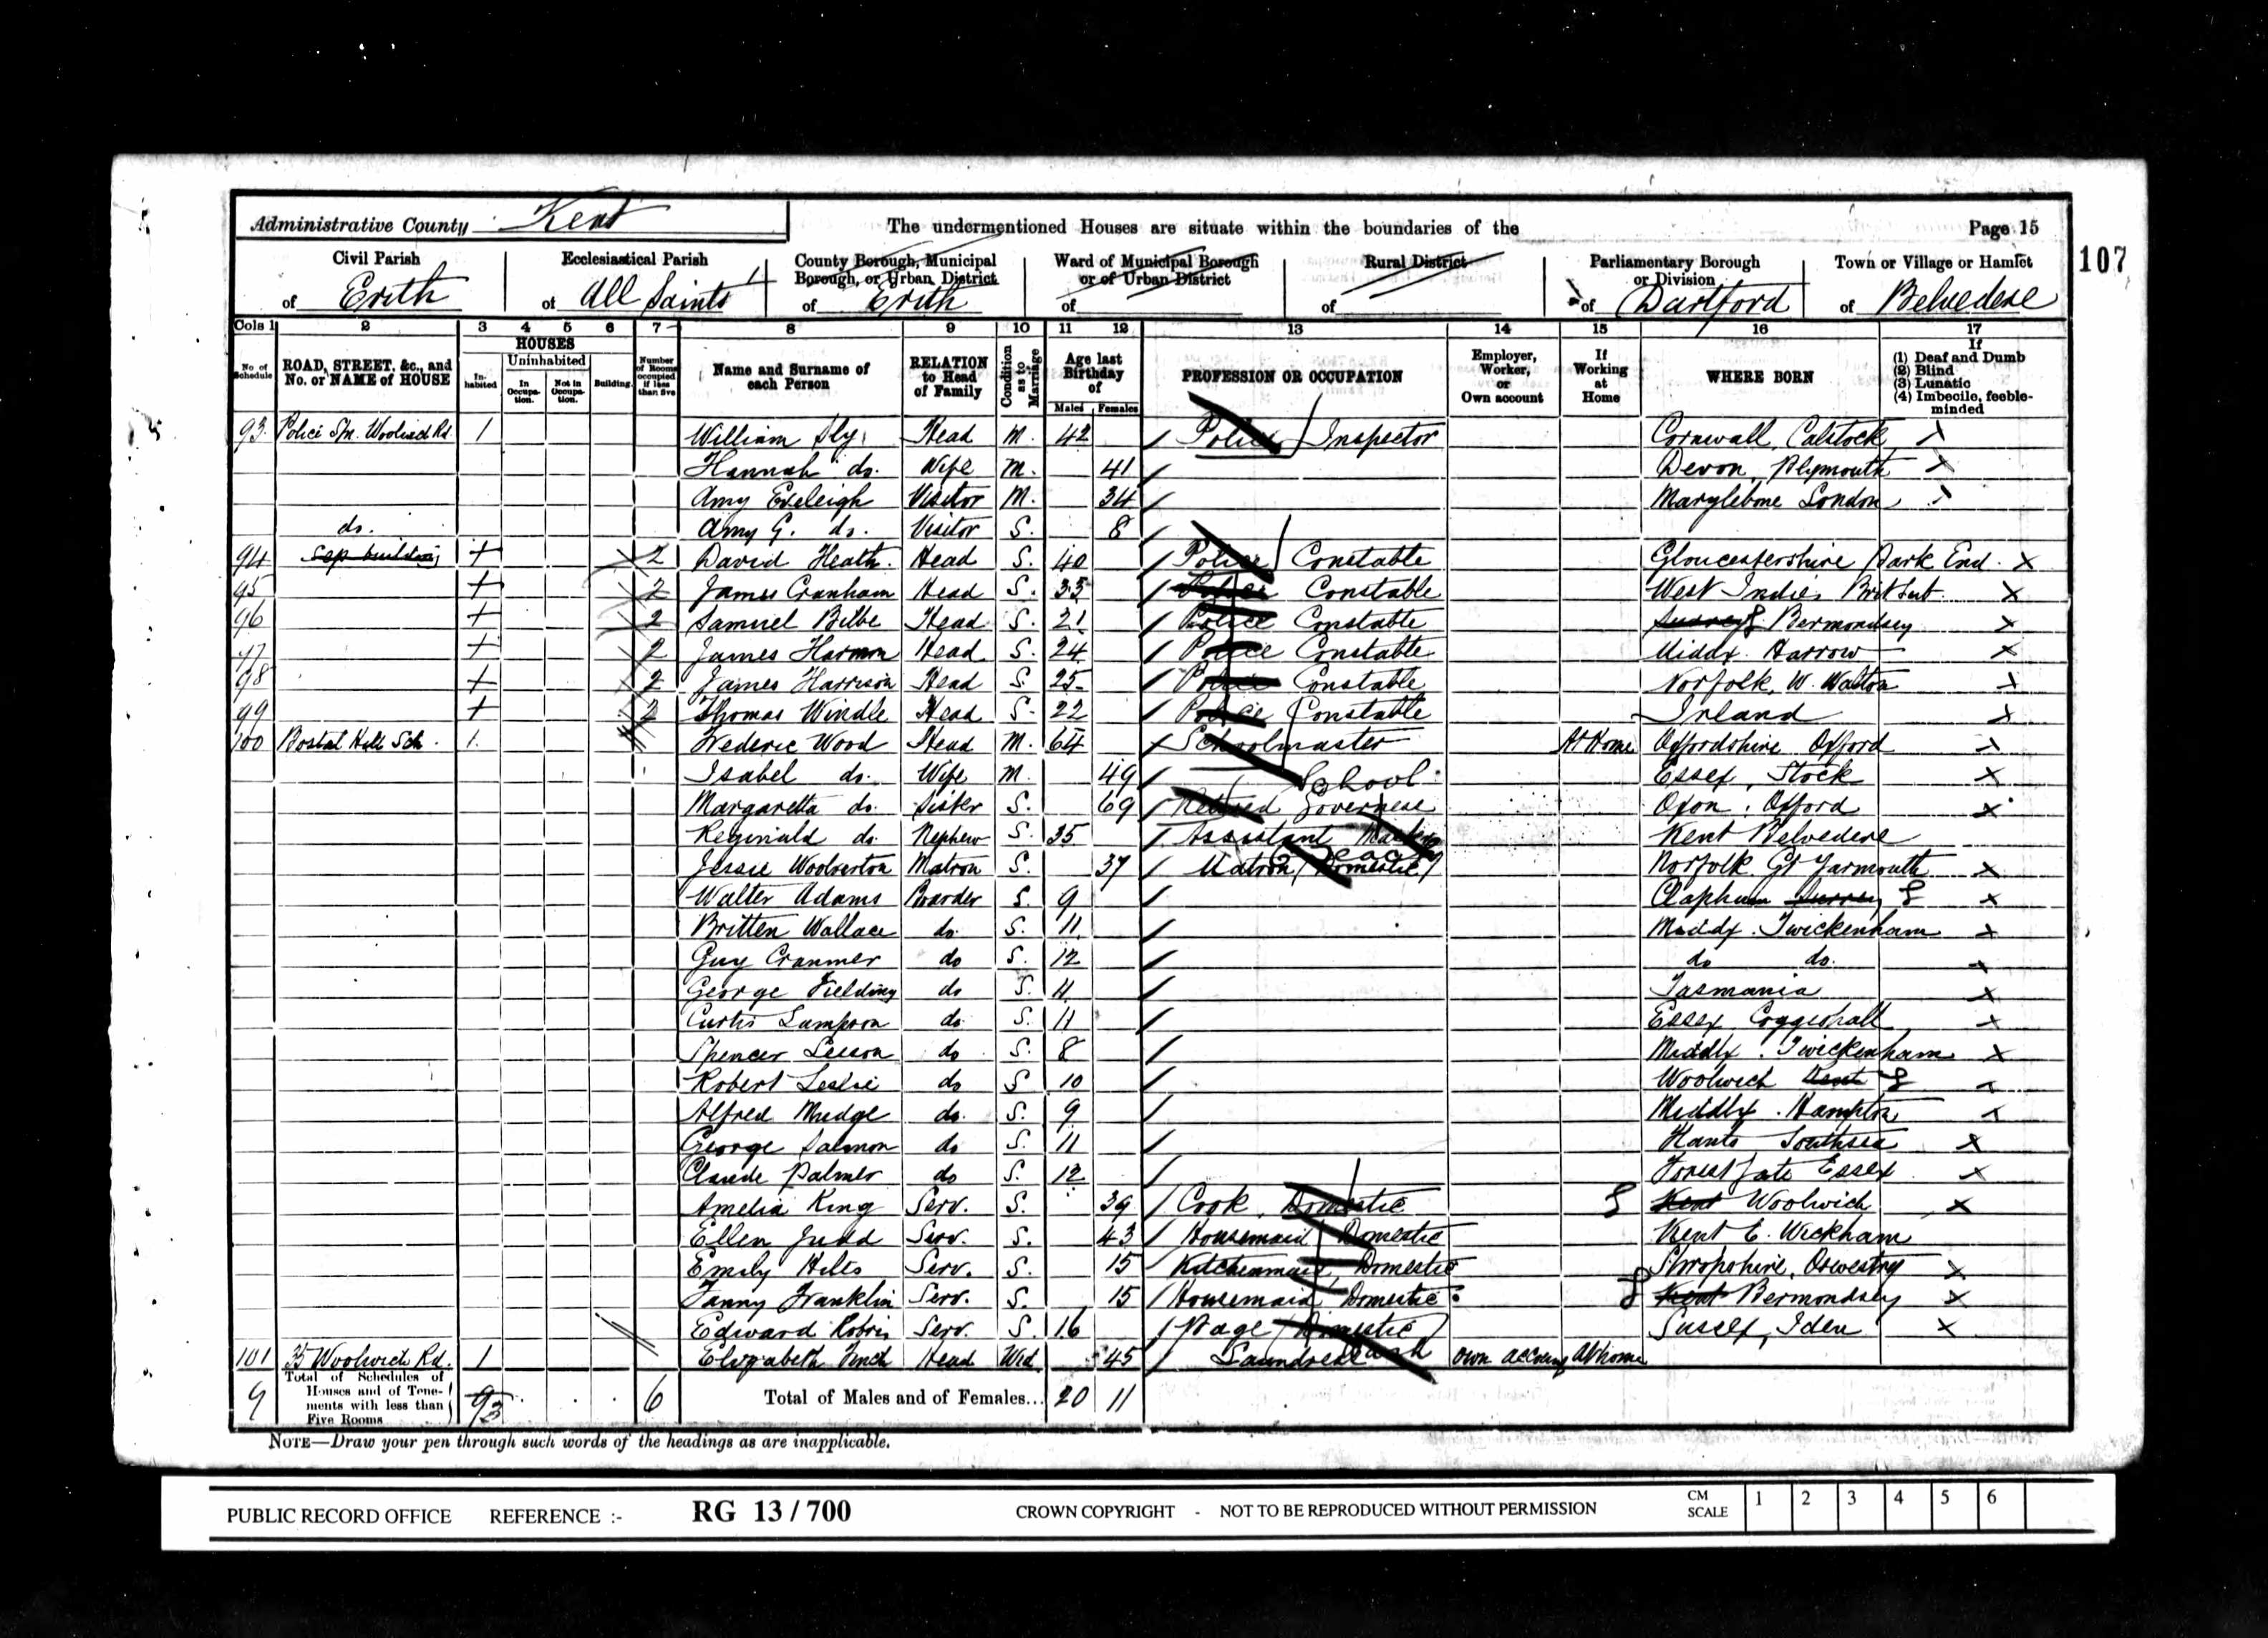 Administrative County Kent The undermentioned Houses are situate within the boundaries of the Page 15
107
Civil Parish of Erith
Ecclesiastical Parish of All Saints
County Borough, Municipal Borough, or Urban District of Erith
Ward of Municipal Borough or of Urban District of
Rural District of
Parliamentary Borough or Division of Dartford
Town or Village or Hamlet of Belvedere
Cols 1 2 3 4 5 6 7 8 9 10 11 12 13 14 15 16 17
No. of Schedule
ROAD, STREET, &c., and No. or NAME of HOUSE
HOUSES
Inhabited
Uninhabited
In Occupation.
Not in Occupation.
Building.
Number of Rooms occupied if less than five
Name and Surname of each Person
RELATION to Head of Family
Condition as to Marriage
Age last Birthday of
Males Females
PROFESSION OR OCCUPATION
Employer, Worker, or Own account
If Working at Home
WHERE BORN
If
(1) Deaf and Dumb
(2) Blind
(3) Lunatic
(4) Imbecile, feeble-minded
93 Police Stn. Woolwich Rd. 1 William Sly Head M. 42 Police Inspector Cornwall, Calstock
Hannah do. Wife M. 41 Devon, Plymouth
Amy Eveleigh Visitor M. 34 Marylebone London
do. Amy G. do. Visitor S. 8
94 Sep building 2 David Heath Head S. 40 Police Constable Gloucestershire Park End
95 2 James Cranham Head S. 33 Police Constable West Indies Brit Sub
96 2 Samuel Bilbe Head S. 21 Police Constable Surrey Bermondsey
97 2 James Harmon Head S. 24 Police Constable Middx. Harrow
98 2 James Harrison Head S. 25 Police Constable Norfolk, W. Walton
99 2 Thomas Windle Head S. 22 Police Constable Irland
100 Bostal Hill Sch. 1 Frederic Wood Head M. 64 Schoolmaster At Home Oxfordshire Oxford
Isabel do. Wife M. 49 Essex, Stock
School
Margaretta do. Sister S. 69 Retired Governess Oxon, Oxford
Reginald do. Nephew S. 35 Assistant Kent Belvedere
Jessie Woolverton Matron S. 37 Matron (Domestic) Norfolk Gt Yarmouth
Walter Adams Boarder S. 9 Clapham Surrey
Britten Wallace do. S. 11 Middx. Twickenham
Guy Cranmer do S. 12 do do.
George Fielding do S. 11 Tasmania
Curtis Lampson do. S. 11 Essex Coggeshall
Spencer Leeson do S. 8 Middlx. Twickenham
Robert Leslie do S 10 Woolwich Kent
Alfred Mudge do. S. 9 Middlx. Hampton
George Salmon do S. 11 Hants Southsea
Claude Palmer do S. 12 Forest Gate Essex
Amelia King Serv. S. 39 Cook. Domestic Kent Woolwich
Ellen Judd Serv. S. 43 Housemaid Domestic Kent E. Wickham
Emily Serv. S. 15 Kitchenmaid, Domestic Shropshire, Oswestry
Fanny Franklin Serv. S. 15 Housemaid Domestic Kent Bermondsey
Edward Serv. S. 16 Page (Domestic) Sussex, Iden
101 35 Woolwich Rd. 1 Elizabeth Finch Head Wid 45 Laundress Wash own account At home
9 Total of Schedules of Houses and of Tenements with less than Five Rooms 6 Total of Males and of Females... 20 11
NOTE—Draw your pen through such words of the headings as are inapplicable.
PUBLIC RECORD OFFICE REFERENCE :- RG 13 / 700 CROWN COPYRIGHT - NOT TO BE REPRODUCED WITHOUT PERMISSION CM SCALE 1 2 3 4 5 6